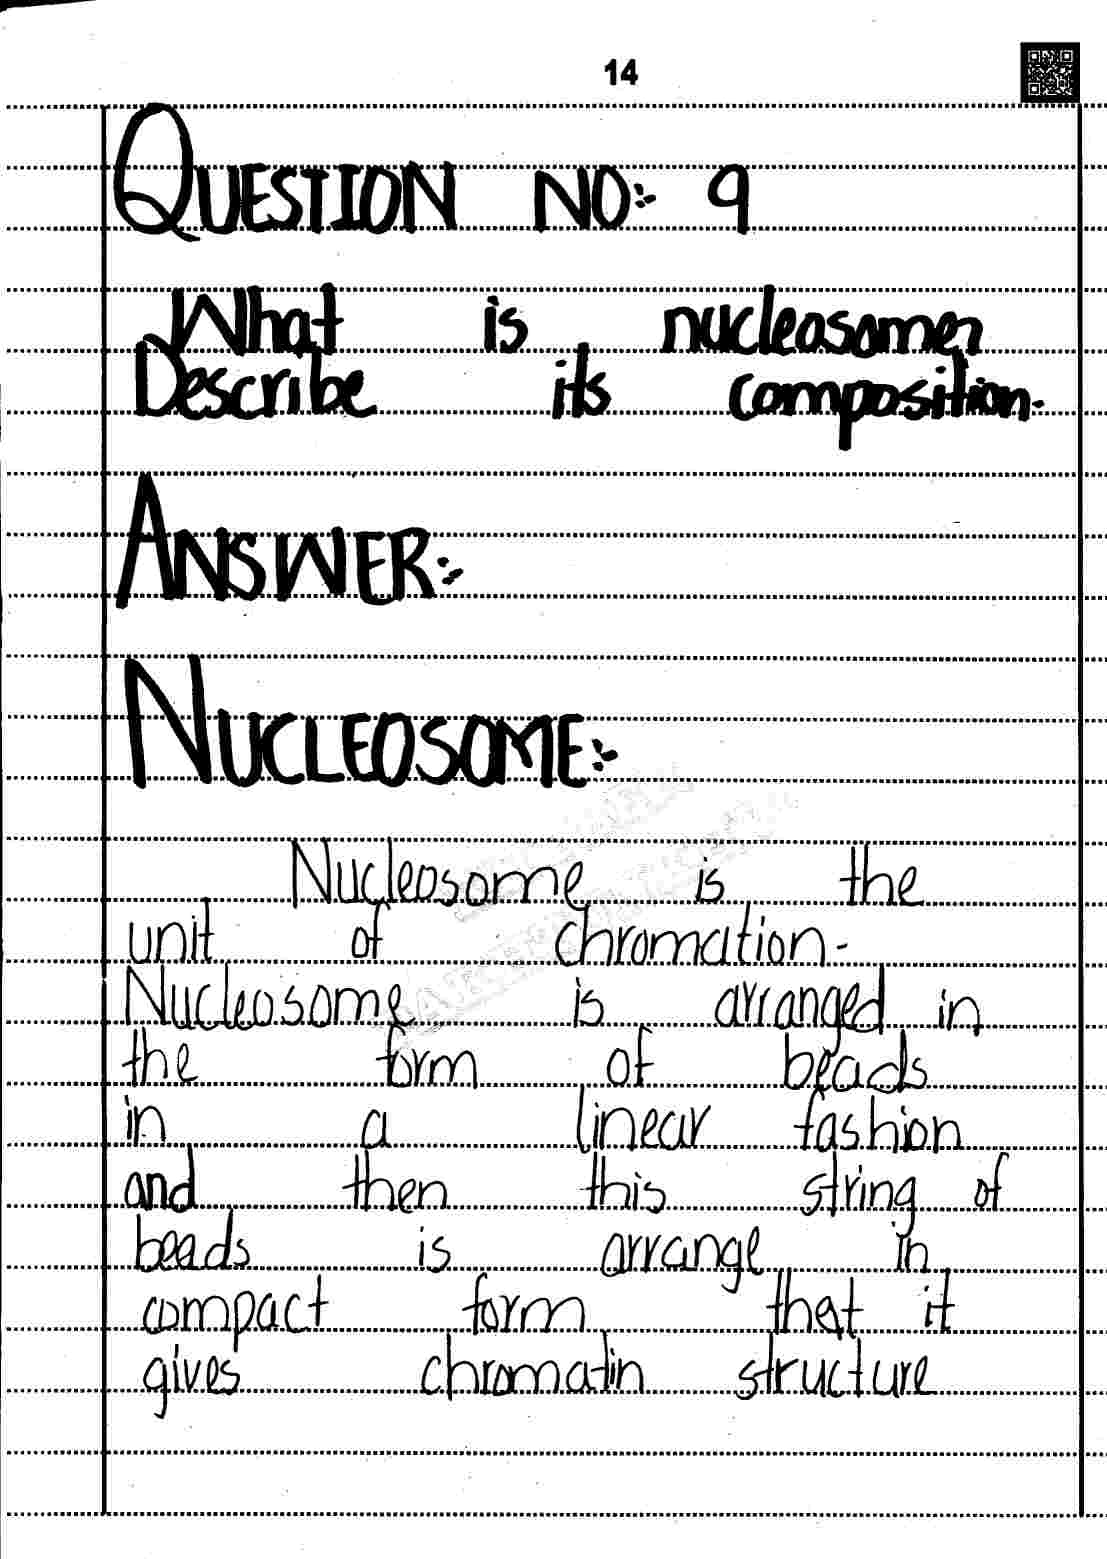 14
QUESTION NO:- 9
What is nucleosome?
Describe its composition.
ANSWER:-
NUCLEOSOME:-
Nucleosome is the
unit of chromation.
Nucleosome is arranged in
the form of beads
in a linear fashion
and then this string of
beads is arrange in
compact form that it
gives chromatin structure